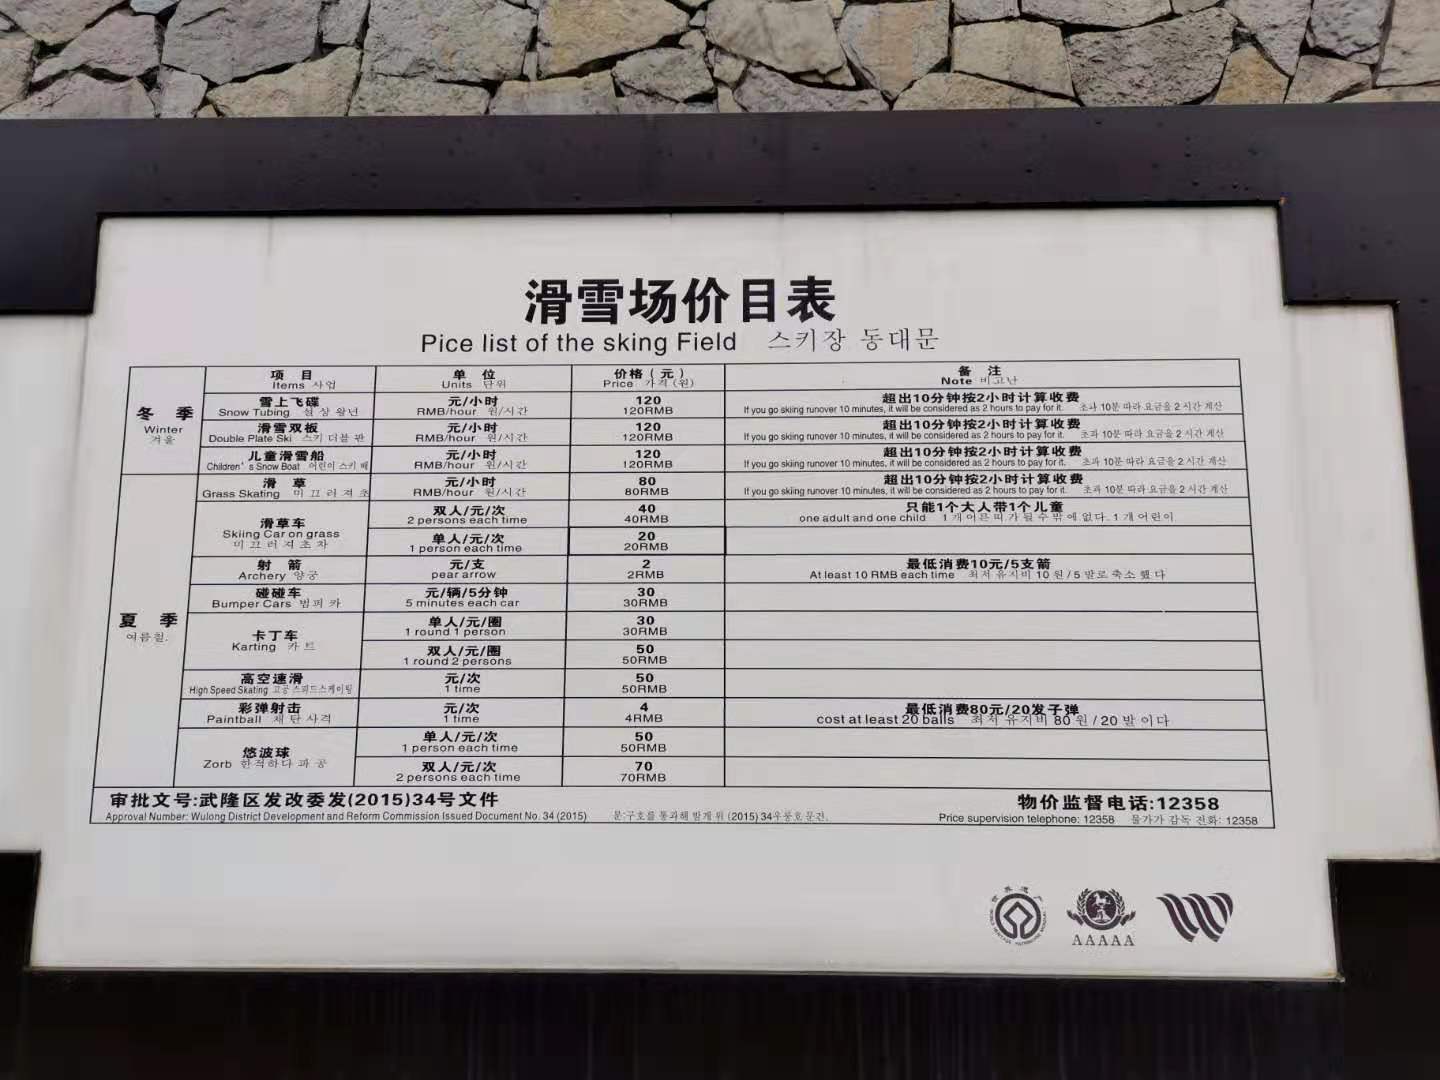 滑雪场价目表
Pice list of the sking Field 스키장 동대문
项 目 单 位 价格（元） 备 注
Items 사업 Units 단위 Price 가격 (원) Note 비고난
冬 季
Winter
겨울
雪上飞碟 元/小时 120 超出10分钟按2小时计算收费
Snow Tubing 설 상 왕년 RMB/hour 원/시간 120RMB If you go skiing runover 10 minutes, it will be considered as 2 hours to pay for it. 초과 10분 따라 요금을 2 시간 계산
滑雪双板 元/小时 120 超出10分钟按2小时计算收费
Double Plate Ski 스키 더블 판 RMB/hour 원/시간 120RMB If you go skiing runover 10 minutes, it will be considered as 2 hours to pay for it. 초과 10분 따라 요금을 2 시간 계산
儿童滑雪船 元/小时 120 超出10分钟按2小时计算收费
Children's Snow Boat 어린이 스키 배 RMB/hour 원/시간 120RMB If you go skiing runover 10 minutes, it will be considered as 2 hours to pay for it. 초과 10분 따라 요금을 2 시간 계산
夏 季
여름철.
滑 草 元/小时 80 超出10分钟按2小时计算收费
Grass Skating 미 끄 러 져 초 RMB/hour 원/시간 80RMB If you go skiing runover 10 minutes, it will be considered as 2 hours to pay for it. 초과 10분 따라 요금을 2 시간 계산
滑草车
Skiing Car on grass
미 끄 러 져 초 차
双人/元/次 40 只能1个大人带1个儿童
2 persons each time 40RMB one adult and one child 1 개 어른 띠 가 될 수 밖 에 없다. 1 개 어린이
单人/元/次 20
1 person each time 20RMB
射 箭 元/支 2 最低消费10元/5支箭
Archery 양궁 pear arrow 2RMB At least 10 RMB each time 최저 유지비 10 원 / 5 발로 축소 했 다
碰碰车 元/辆/5分钟 30
Bumper Cars 범퍼 카 5 minutes each car 30RMB
卡丁车
Karting 카 트
单人/元/圈 30
1 round 1 person 30RMB
双人/元/圈 50
1 round 2 persons 50RMB
高空速滑 元/次 50
High Speed Skating 고공 스피드스케이팅 1 time 50RMB
彩弹射击 元/次 4 最低消费80元/20发子弹
Paintball 채 탄 사격 1 time 4RMB cost at least 20 balls 최저 유지비 80 원 / 20 발 이다
悠波球
Zorb 한적하다 파 공
单人/元/次 50
1 person each time 50RMB
双人/元/次 70
2 persons each time 70RMB
审批文号:武隆区发改委发(2015)34号文件 物价监督电话:12358
Approval Number: Wulong District Development and Reform Commission Issued Document No. 34 (2015) 문:구호를 통과해 발계 위 (2015) 34우룽호 문건. Price supervision telephone: 12358 물가가 감독 전화: 12358
AAAAA